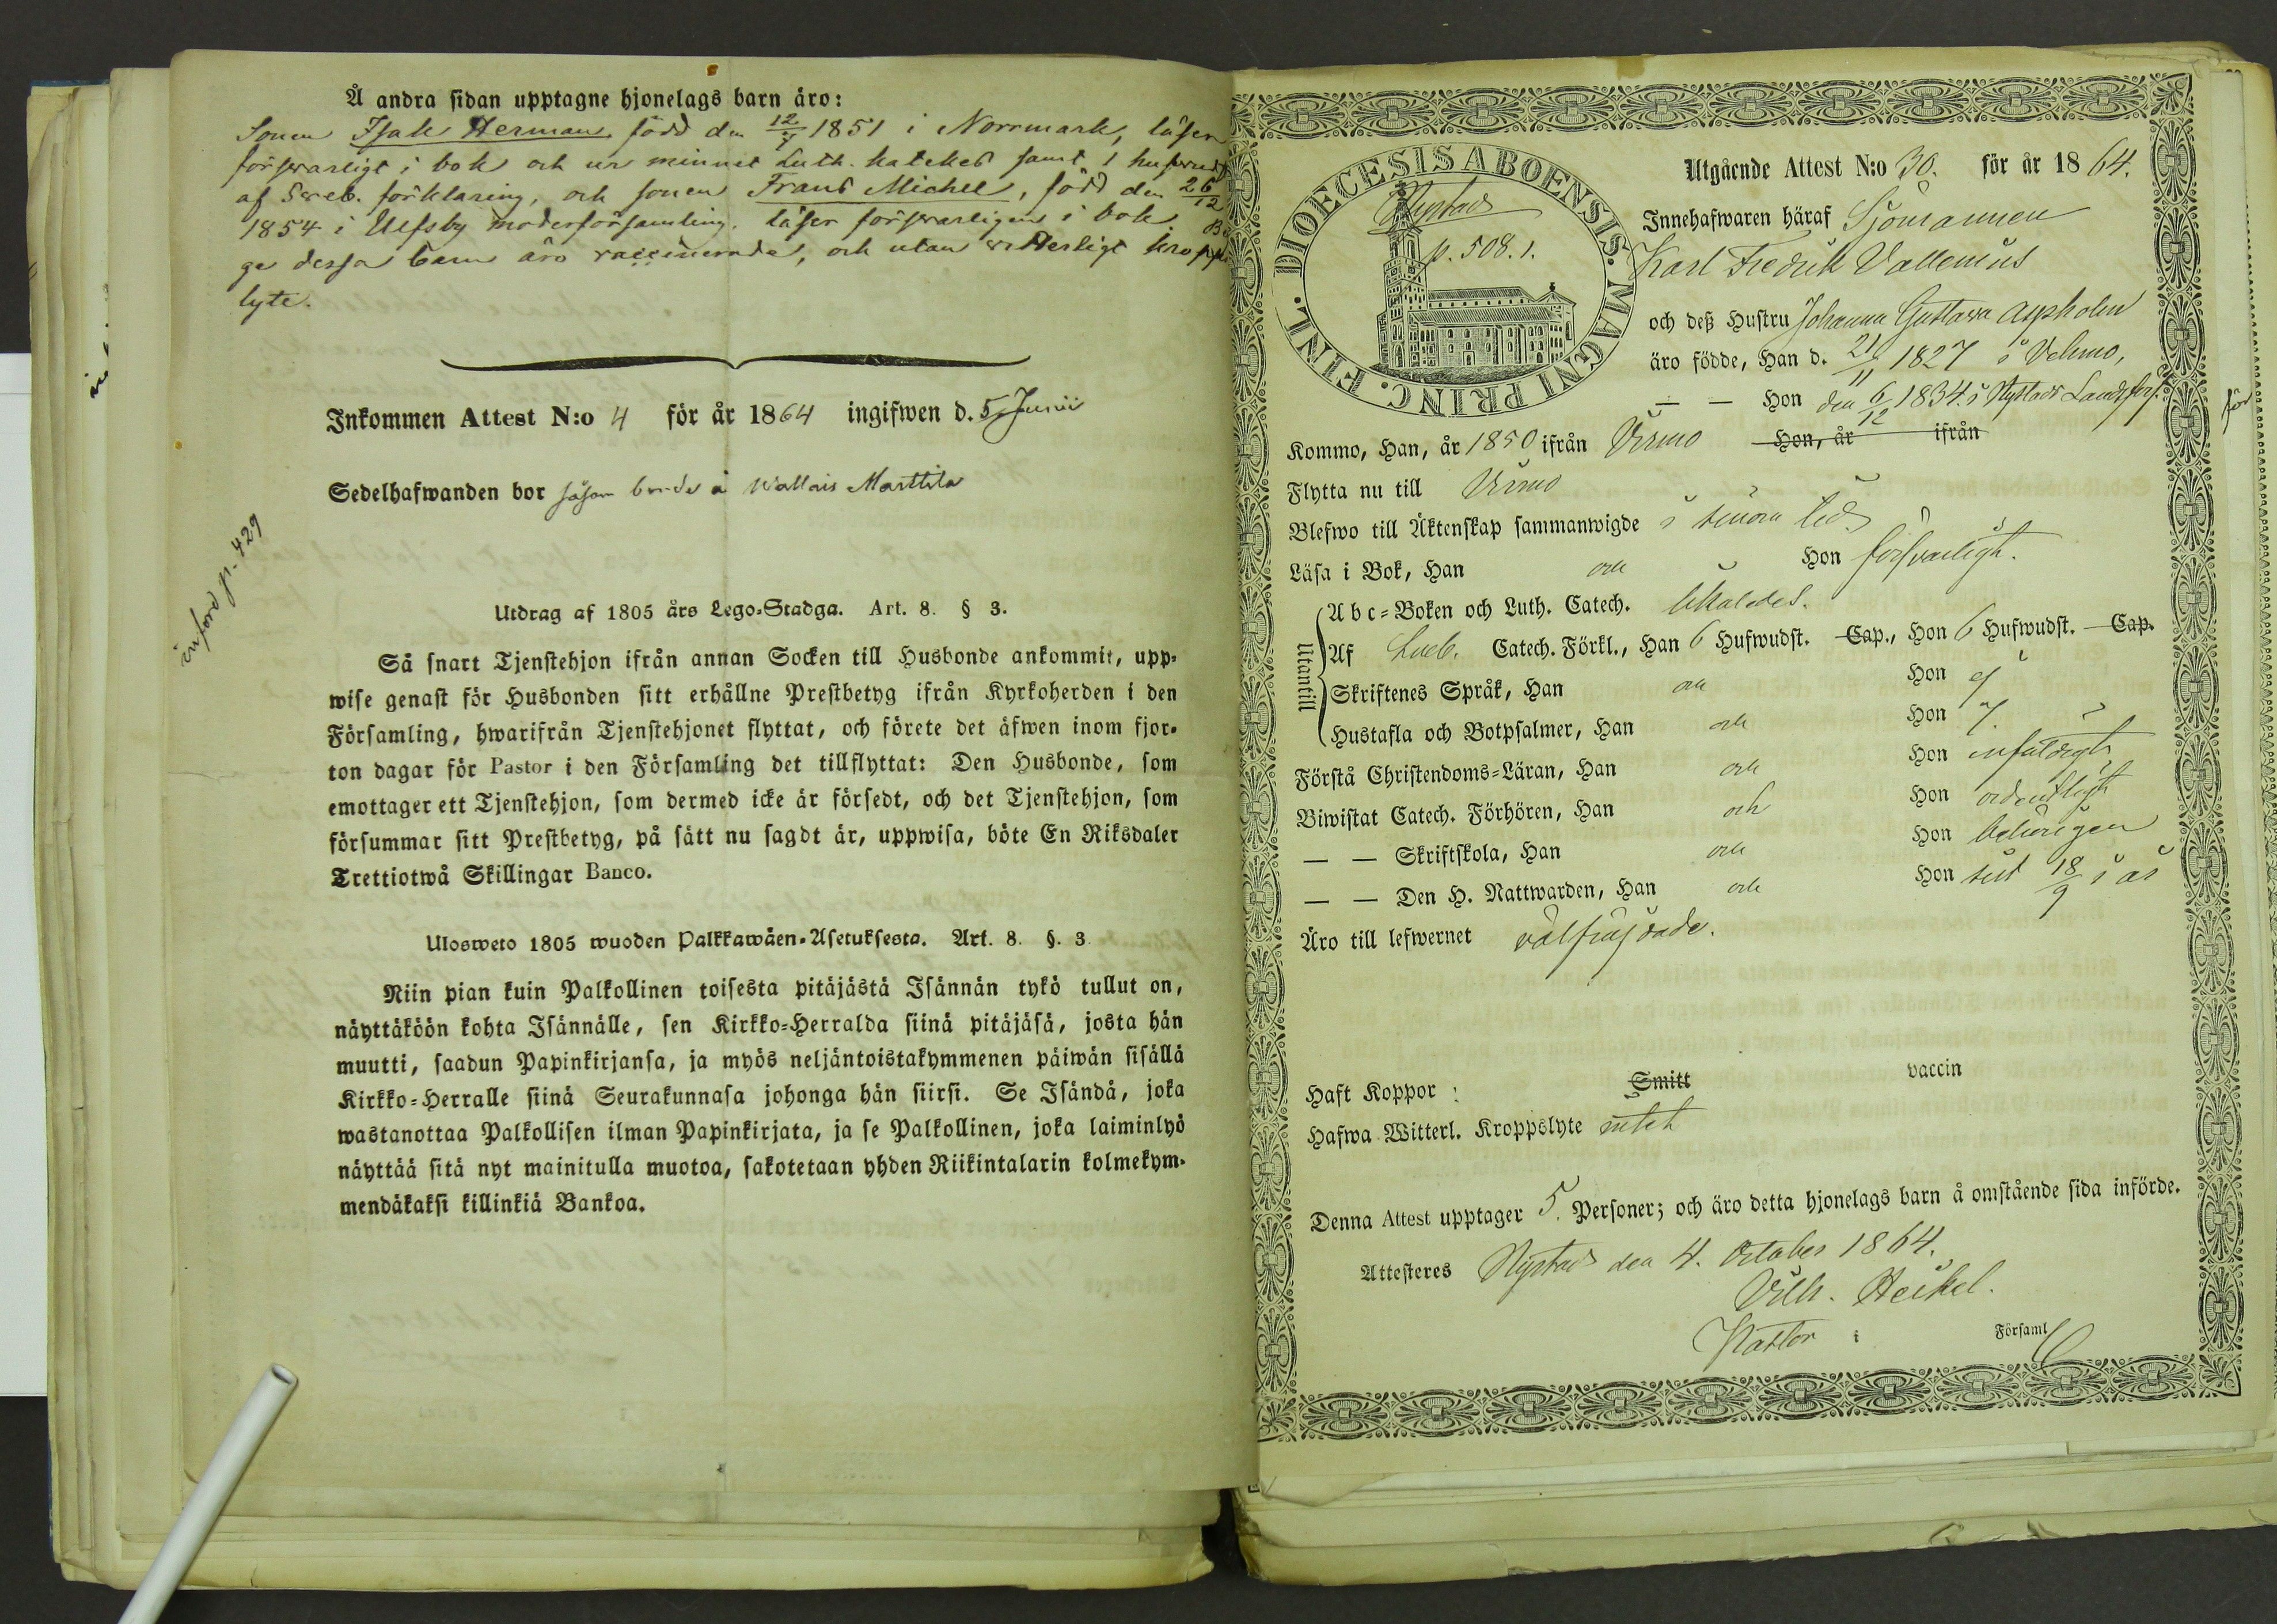 Å andra sidan upptagne hjonelags barn äro:
Sonen Isak Herman född den 12/4 1851 i Norrmark, läser
förswarligt i bok och ur minnet Luth. kateches samt 1 hufwudst
af Sveb. förklaring, och sonen Frans Michel, född den 26/12
1854 i Ulfsby moderförsamling, läser förswarligen i bok. Bä
ge dessa barn äro vaccinerade, och utan witterligt kropps
lyte.
Inkommen Attest N:o 4 för år 1864 ingifwen d. 5 Junii
Sedelhafwanden bor såsom bonde å Wallais Marttila
införd p. 429
Utdrag af 1805 års Lego-Stadga. Art. 8. § 3.
Så snart Tjenstehjon ifrån annan Socken till Husbonde ankommit, upp-
wise genast för Husbonden sitt erhållne Prestbetyg ifrån Kyrkoherden i den
Församling, hwarifrån Tjenstehjonet flyttat, och förete det äfwen inom fjor-
ton dagar för Pastor i den Församling det tillflyttat: Den Husbonde, som
emottager ett Tjenstehjon, som dermed icke är försedt, och det Tjenstehjon, som
försummar sitt Prestbetyg, på sätt nu sagdt är, uppwisa, böte En Riksdaler
Trettiotwå Skillingar Banco.
Ulosweto 1805 wuoden Palkkawäen-Asetuksesta. Art. 8. §. 3.
Niin pian kuin Palkollinen toisesta pitäjästä Isännän tykö tullut on,
näyttäköön kohta Isännälle, sen Kirkko-Herralda siinä pitäjäsä, josta hän
muutti, saadun Papinkirjansa, ja myös neljäntoistakymmenen päiwän sisällä
Kirkko-Herralle siinä Seurakunnasa johonga hän siirsi. Se Isändä, joka
wastanottaa Palkollisen ilman Papinkirjata, ja se Palkollinen, joka laiminlyö
näyttää sitä nyt mainitulla muotoa, sakotetaan yhden Riikintalarin kolmekym-
mendäkaksi killinkiä Bankoa.
DIOECESIS ABOENSIS. MAGNI PRINC. FINL.
Nystad
p. 508. 1.
Utgående Attest N:o 30. för år 1864.
Innehafwaren häraf Sjömannen
Karl Fredrik Vallenius
och deß Hustru Johanna Gustava Aspholm
äro födde, Han d. 21/11 1827 i Vehmo,
— — Hon den 6/12 1834 i Nystads Landsförs.
Kommo, Han, år 1850 ifrån Virmo Hon, år ifrån
Flytta nu till Virmo
Blefwo till Äktenskap sammanwigde i sinom tid
Läsa i Bok, Han och Hon försvarligt.
Utantill
Abc-Boken och Luth. Catech. likaledes.
Af Sveb. Catech. Förkl., Han 6 Hufwudst. Cap., Hon 6 Hufwudst. Cap.
Skriftenes Språk, Han och Hon ej
Hustafla och Botpsalmer, Han och Hon ej.
Förstå Christendoms-Läran, Han och Hon enfaldigt
Biwistat Catech. Förhören, Han och Hon ordentligt
— — Skriftskola, Han och Hon behörigen
— — Den H. Nattwarden, Han och Hon sist 18/9 i år
Äro till lefwernet välfräjdade.
Haft Koppor: Smitt vaccin
Hafwa Witterl. Kroppslyte intet
Denna Attest upptager 5. Personer; och äro detta hjonelags barn å omstående sida införde.
Attesteres Nystad den 4. October 1864.
Vilh. Heikel.
Pastor i Församl
för